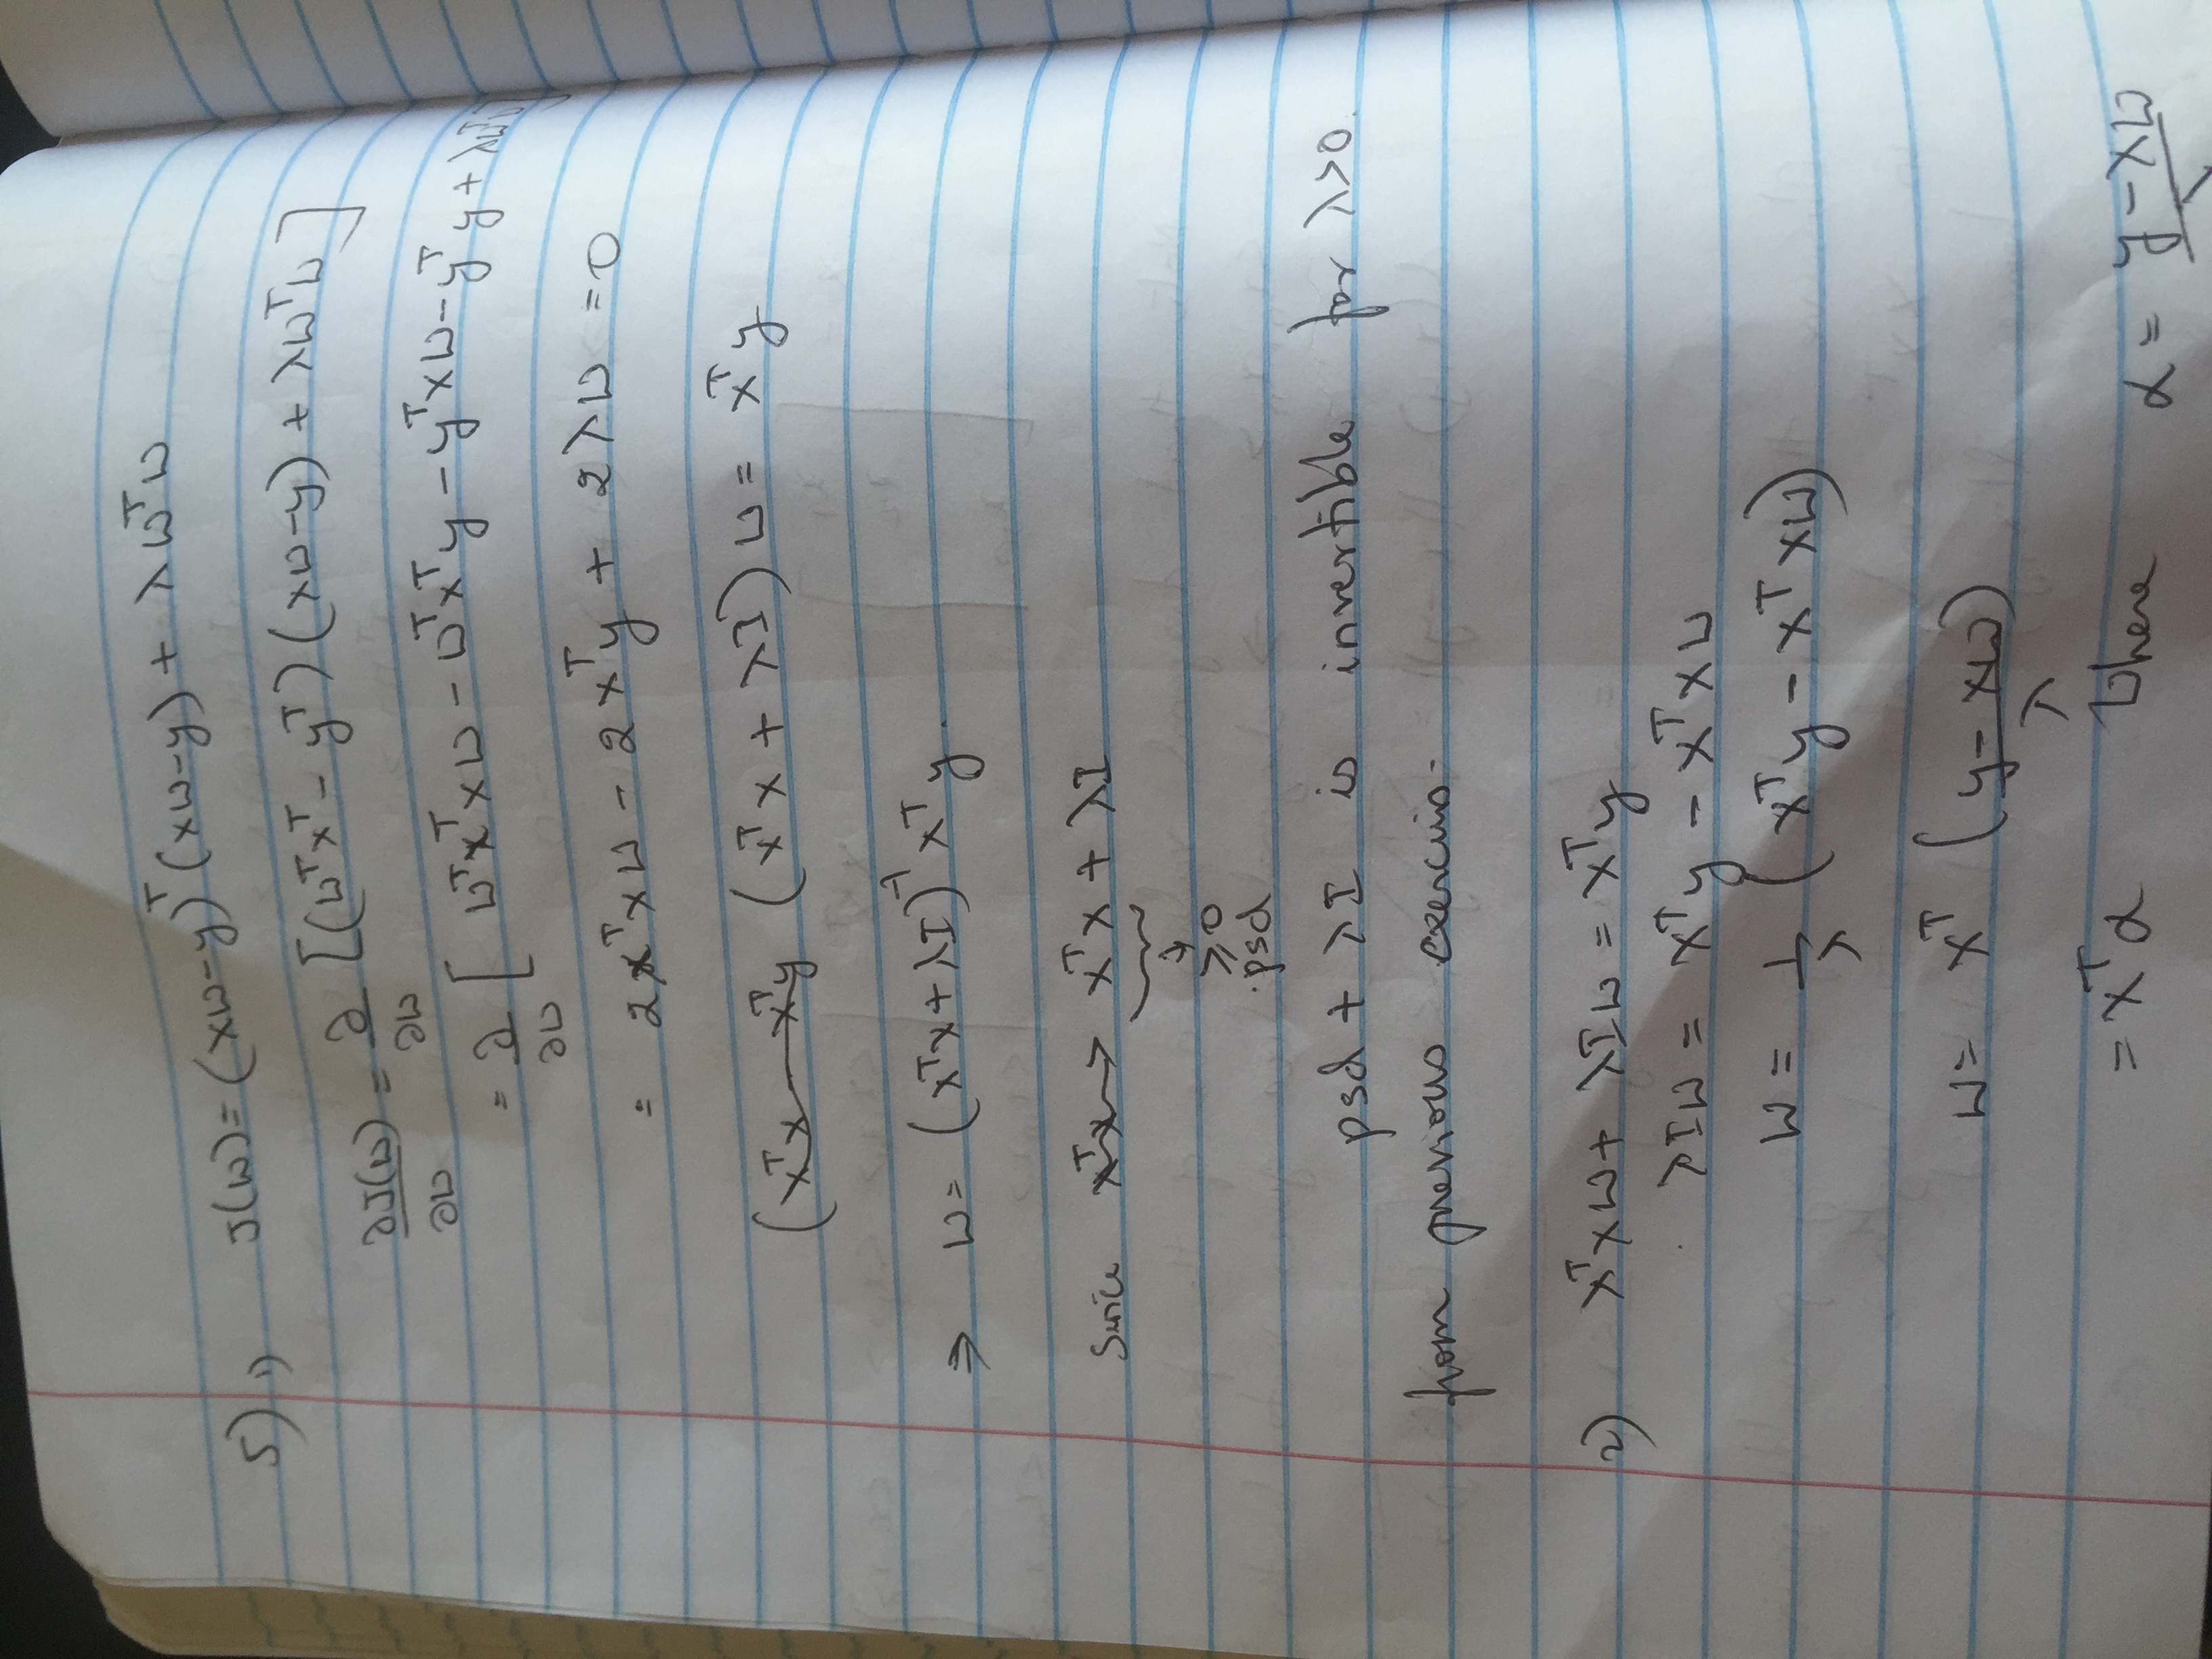 5) 1) J(w) = (xw-y)^T (xw-y) + λ w^T w
∂J(w)/∂w = ∂/∂w [(w^T x^T - y^T) (xw-y) + λw^T w]
= ∂/∂w [ w^T x^T xw - w^T x^T y - y^T xw - y^T y + λw^T w]
= 2x^T xw - 2x^T y + 2λw = 0
(x^T x - x^T y (x^T x + λI) w = x^T y
⇒ w = (x^T x + λI)^-1 x^T y.
Since x^T x → x^T x + λI
↓
≥0
psd
psd + λI is invertible for λ>0.
from previous exercise.
2) x^T xw + λIw = x^T y
λIw = x^T y - x^T xw
w = 1/λ ( x^T y - x^T xw)
w = x^T (y - xw)/λ
= x^T α where α = y - xw